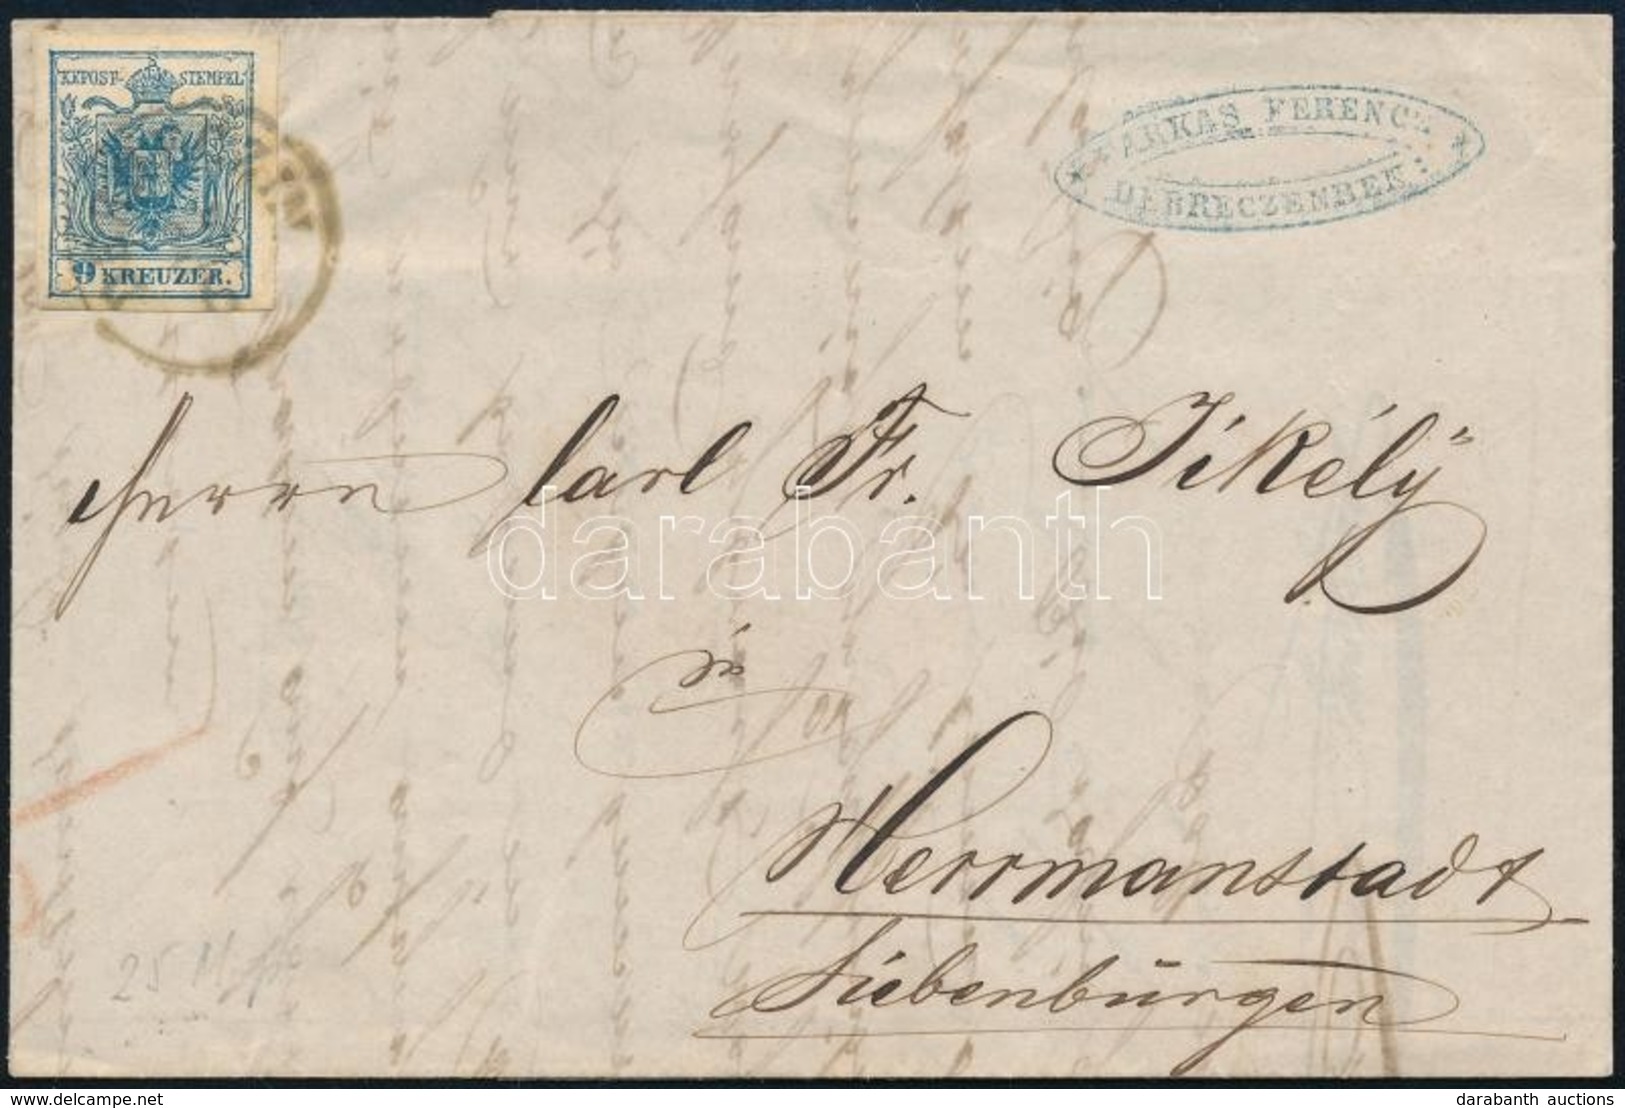 KKPOST- STEMPEL
9 KREUZER.
FARKAS FERENCZ
DEBRECZENBEN
Herrn Carl Fr. Jikély
in
Herrmanstadt
Siebenbürgen
darabanth
www.darabanth.com
darabanth auctions